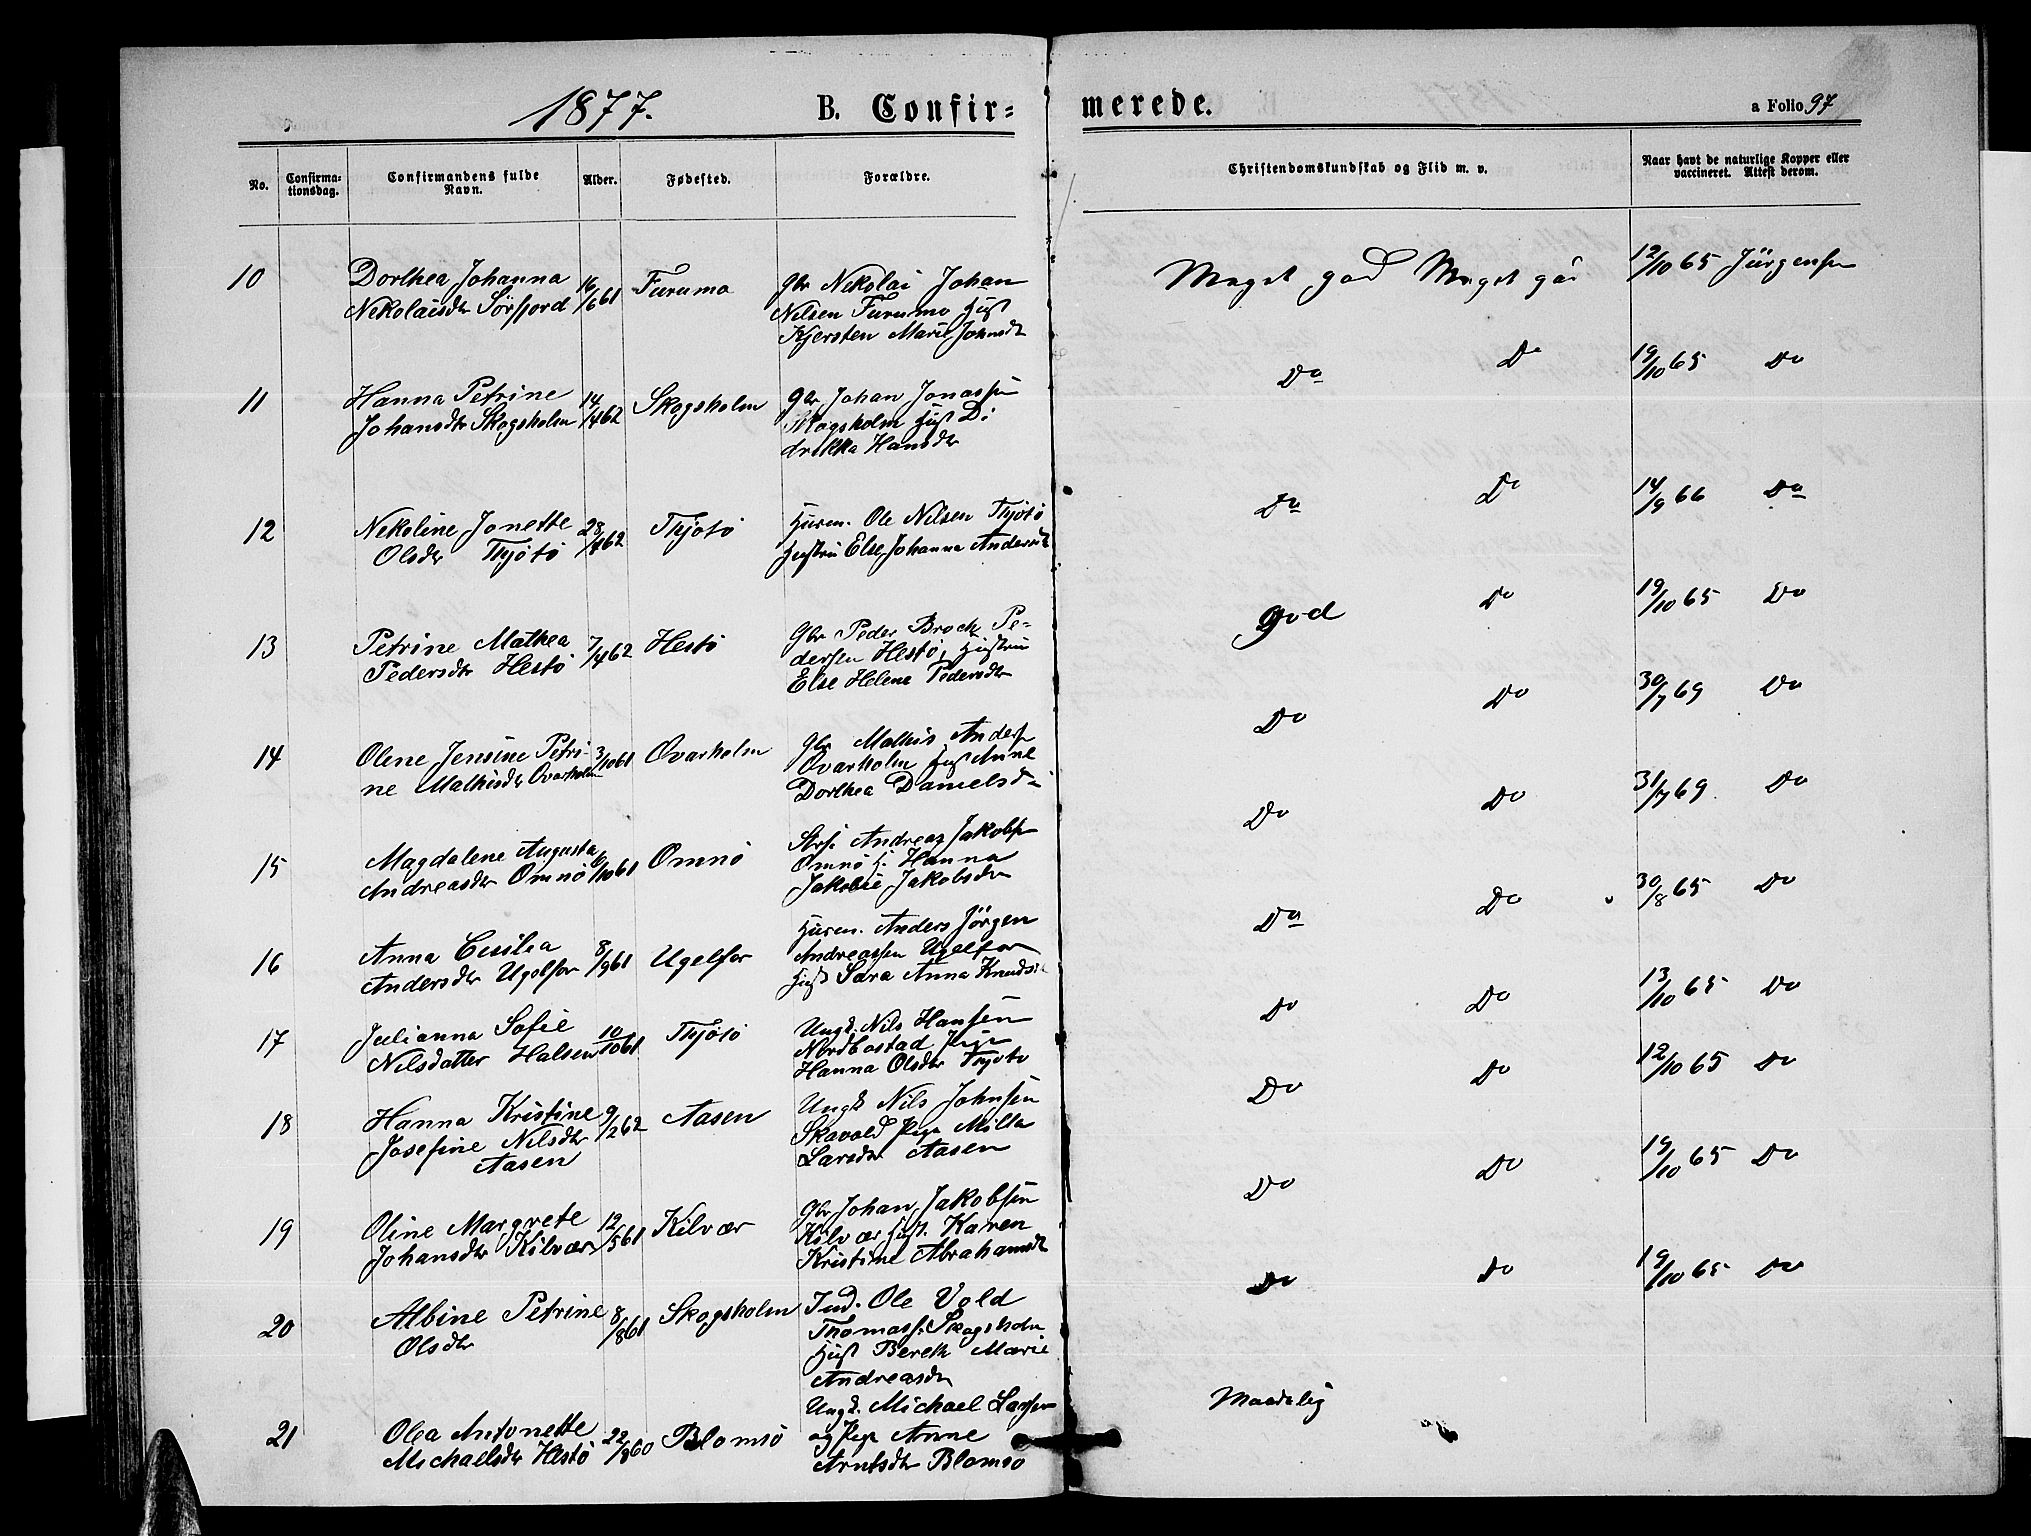 1877.
B. Confir-
merede.
a Folio 97
No.
Confirma-
tionsdag.
Confirmandens fulde
Navn.
Alder.
Fødested.
Forældre.
Christendomskundskab og Flid m. v.
Naar havt de naturlige Kopper eller
vaccineret. Attest derom.
10
Dorthea Johanna
Nekolaisdtr Sörfjord
16/6 61
Furumo
Gbr Nekolai Johan
Nilsen Furumo Hust
Kjersten Marie Johnsdt
Meget god Meget god
12/10 65 Jürgensen
11
Hanna Petrine
Johansdtr Skogsholm
14/4 62
Skogsholm
Gbr Johan Jonassen
Skogsholm Hust Di
drikka Hansdtr
Do Do
19/10 65 Do
12
Nekoline Jonette
Olsdtr Thjötö
28/4 62
Thjötö
Husm. Ole Nilsen Thjötö
Hustru Else Johanna Andersdt
Do Do
14/9 66 Do
13
Petrine Mathea
Pedersdtr Hestö
7/4 62
Hestö
Gbr Peder Brock Pe-
dersen Hestö, Hustru
Else Helene Pedersdtr
god Do
19/10 65 Do
14
Olene Jensine Petri-
ne Mathisdtr Ovarholm
3/10 61
Ovarholm
Gbr Mathis Anders
Ovarholm Hust Anne
Dorthea Danielsd
Do Do
30/7 69 Do
15
Magdalene Augusta
Andreasdtr Omnö
6/10 61
Omnö
Andreas Jakobsen
Omnö H. Hanna
Jakobie Jakobsdtr
Do Do
31/7 69 Do
16
Anna Cesilia
Andersdtr Ugelfor
8/9 61
Ugelfor
Husm. Anders Jörgen
Andreassen Ugelfor
Hust Sara Anna Knuds
Do Do
30/8 65 Do
17
Julianna Sofie
Nilsdatter Halsen
10/10 61
Thjötö
Ungk. Nils Hansen
Nordbostad Pige
Hanna Olsdtr Thjötö
Do Do
13/10 65 Do
18
Hanna Kristine
Josefine Nilsdtr
Aasen
9/2 62
Aasen
Ungk Nils Johnsen
Skavold Pige Milla
Larsdtr Aasen
Do Do
12/10 65 Do
19
Oline Margrete
Johansdtr Kilvær
12/5 61
Kilvær
Gbr Johan Jakobsen
Kilvær, Hust. Karen
Kristine Abrahamsdt
Do Do
19/10 65 Do
20
Albine Petrine
Olsdtr
8/8 61
Skogsholm
Ind. Ole Vold
Thomass. Skogsholm
Hust Bereth Marie
Andreasdtr
Do Do
19/10 65 Do
21
Olea Antonette
Michaelsdtr Hestö
22/8 60
Blomsö
Ungk. Michael Larsen
og Pige Anne
Arntsdtr Blomsö
Maadelig